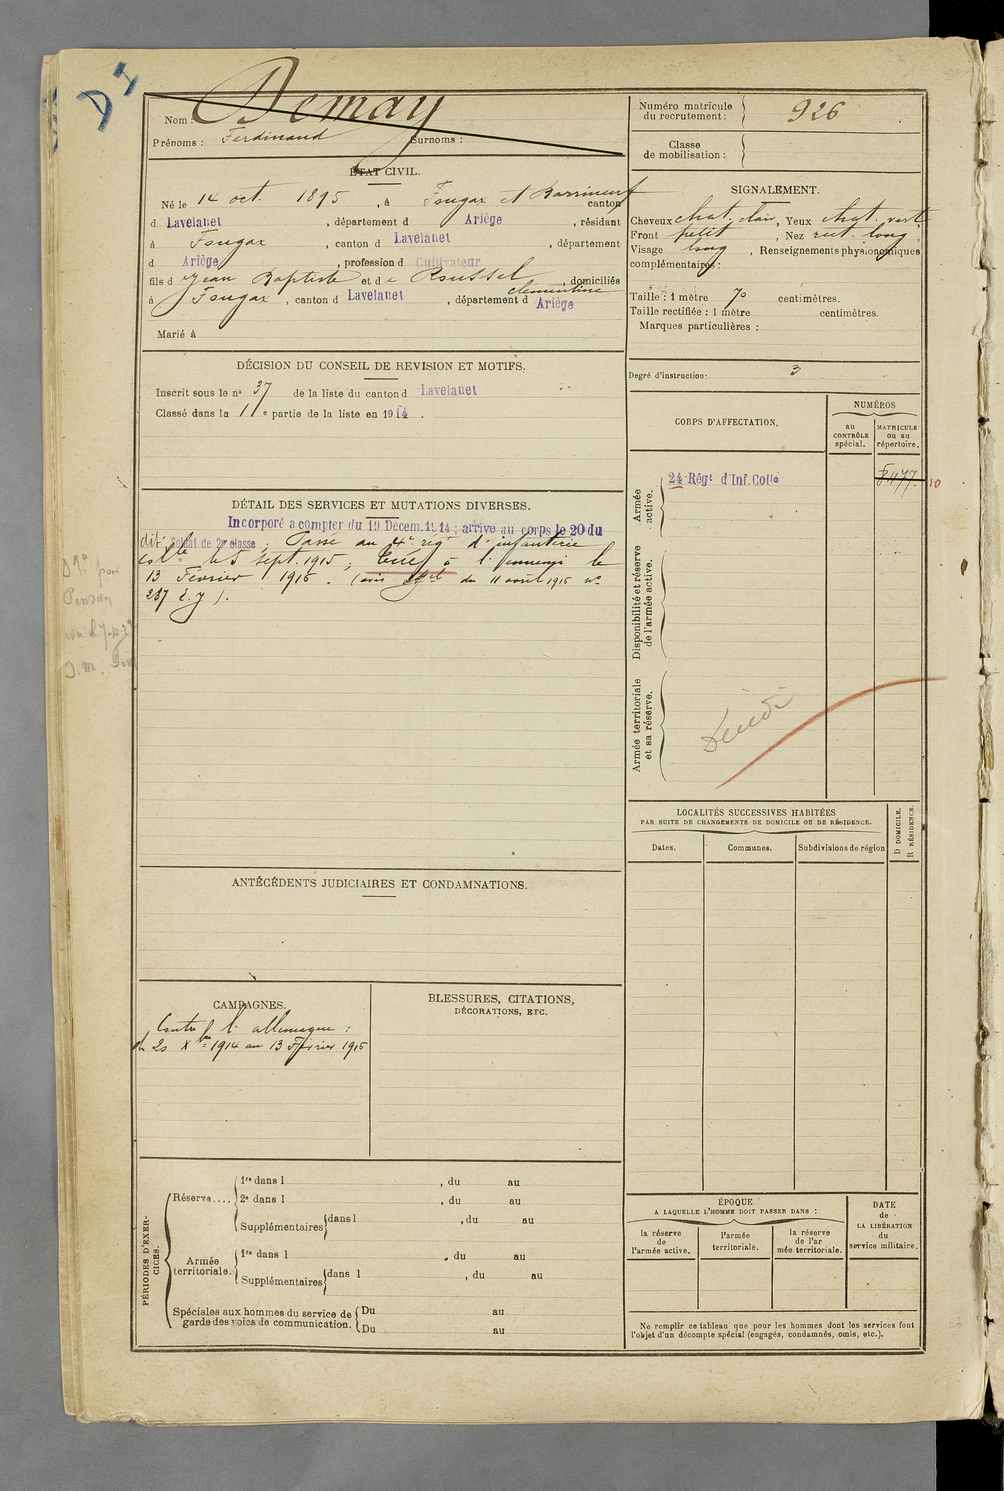 D 1
Nom : Demay
Prénoms : Ferdinand Surnoms :
ÉTAT CIVIL.
Né le 14 oct. 1895, à Fougax et Barrineuf canton
d Lavelanet, département d Ariège, résidant
à Fougax, canton d Lavelanet, département
d Ariège, profession d Cultivateur
fils d e Jean Baptiste et d e Roussel Clementine, domiciliés
à Fougax, canton d Lavelanet, département d Ariège
Marié à
DÉCISION DU CONSEIL DE REVISION ET MOTIFS.
Inscrit sous le nº 37 de la liste du canton d Lavelanet
Classé dans la 1re partie de la liste en 1914.
DÉTAIL DES SERVICES ET MUTATIONS DIVERSES.
Incorporé a compter du 19 Décem. 1914 ; arrivé au corps le 20 du
dit. Soldat de 2e classe ; Passé au 4e regt d'infanterie
Colle le 5 sept. 1915 ; tué à l'ennemi le
13 Février 1916. (avis du 11 avril 1916 nº
287 ).
CAMPAGNES.
Contre l'allemagne :
du 20 Xbre 1914 au 13 Février 1916
BLESSURES, CITATIONS,
DÉCORATIONS, ETC.
ANTÉCÉDENTS JUDICIAIRES ET CONDAMNATIONS.
PÉRIODES D'EXER-
CICES.
Réserve....
1re dans l , du au
2e dans l , du au
Supplémentaires dans l , du au
Armée
territoriale.
1re dans l , du au
Supplémentaires dans l , du au
Spéciales aux hommes du service de
garde des voies de communication.
Du au
Du au
Numéro matricule
du recrutement : 926
Classe
de mobilisation :
SIGNALEMENT.
Cheveux chat. clair, Yeux chat. vert
Front petit, Nez rect. long,
Visage long, Renseignements physionomiques
complémentaires :
Taille : 1 mètre 70 centimètres.
Taille rectifiée : 1 mètre centimètres.
Marques particulières :
Degré d'instruction : 3
CORPS D'AFFECTATION.
NUMÉROS
au
CONTRÔLE
spécial.
MATRICULE
ou au
répertoire.
Armée
active.
24 Régt d'Inf. Colle
8477. 10
Disponibilité et réserve
de l'armée active.
Armée territoriale
et sa réserve.
Décédé
LOCALITÉS SUCCESSIVES HABITÉES
PAR SUITE DE CHANGEMENTS DE DOMICILE OU DE RÉSIDENCE.
Dates.
Communes.
Subdivisions de région
D DOMICILE.
R RÉSIDENCE.
ÉPOQUE
A LAQUELLE L'HOMME DOIT PASSER DANS :
la réserve
de
l'armée active.
l'armée
territoriale.
la réserve
de l'ar
mée territoriale.
DATE
de
LA LIBÉRATION
du
service militaire.
Ne remplir ce tableau que pour les hommes dont les services font
l'objet d'un décompte spécial (engagés, condamnés, omis, etc.).